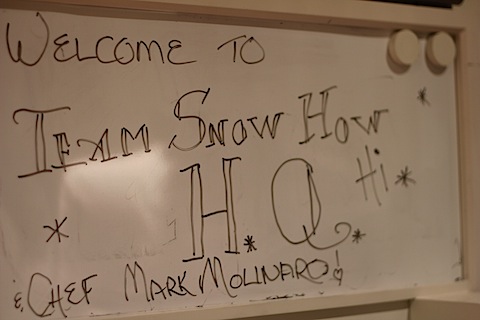 WELCOME TO
TEAM SNOW HOW
H.Q.
Hi
& CHEF MARK MOLINARO!